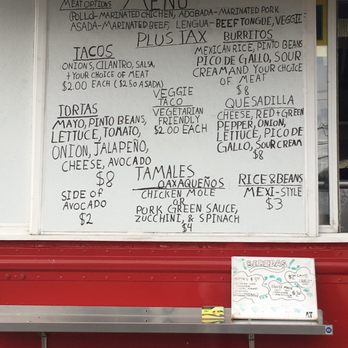 MENU
MEAT OPTIONS
(POLLO-MARINATED CHICKEN, ADOBADA-MARINATED PORK
ASADA-MARINATED BEEF, LENGUA-BEEF TONGUE, VEGGIE
PLUS TAX
TACOS
ONIONS, CILANTRO, SALSA,
+ YOUR CHOICE OF MEAT
$2.00 EACH ($2.50 ASADA)
BURRITOS
MEXICAN RICE, PINTO BEANS
PICO DE GALLO, SOUR
CREAM AND YOUR CHOICE
OF MEAT
$8
VEGGIE
TACO
VEGETARIAN
FRIENDLY
$2.00 EACH
TORTAS
MAYO, PINTO BEANS,
LETTUCE, TOMATO,
ONION, JALAPEÑO,
CHEESE, AVOCADO
$8
QUESADILLA
CHEESE, RED + GREEN
PEPPER, ONION,
LETTUCE, PICO DE
GALLO, SOUR CREAM
$8
SIDE OF
AVOCADO
$2
TAMALES
OAXAQUEÑOS
CHICKEN MOLE
OR
PORK GREEN SAUCE,
ZUCCHINI, & SPINACH
$4
RICE & BEANS
MEXI-STYLE
$3
BEBIDAS